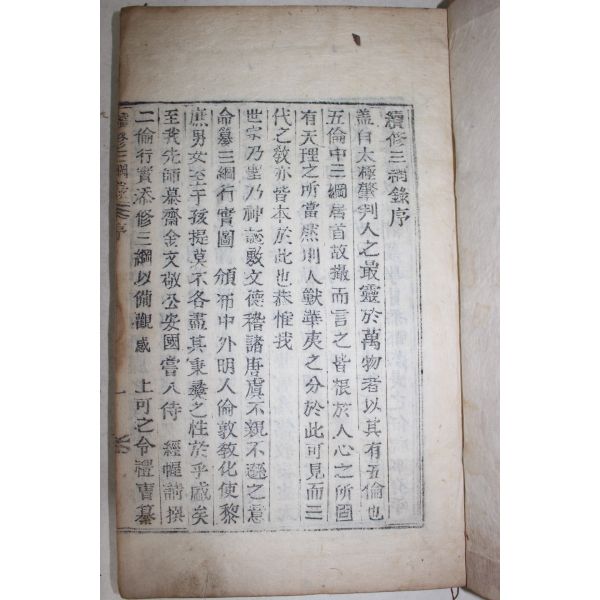 續修三綱錄序
蓋自太極肇判人之最靈於萬物者以其有五倫也
五倫中三綱居首故撮而言之皆根於人心之所固
有天理之所當然則人獸華夷之分於此可見而三
代之敎亦皆本於此也恭惟我
世宗乃聖乃神誕敷文德稽諸唐虞不親不遜之意
命纂三綱行實圖 頒布中外明人倫敦敎化使黎
庶男女至于孩提莫不各盡其秉彝之性於乎盛矣
至我先師慕齋金文敬公安國嘗入侍 經幄請撰
二倫行實添修三綱以備觀感 上可之令禮曹纂
續修三綱錄 序 一